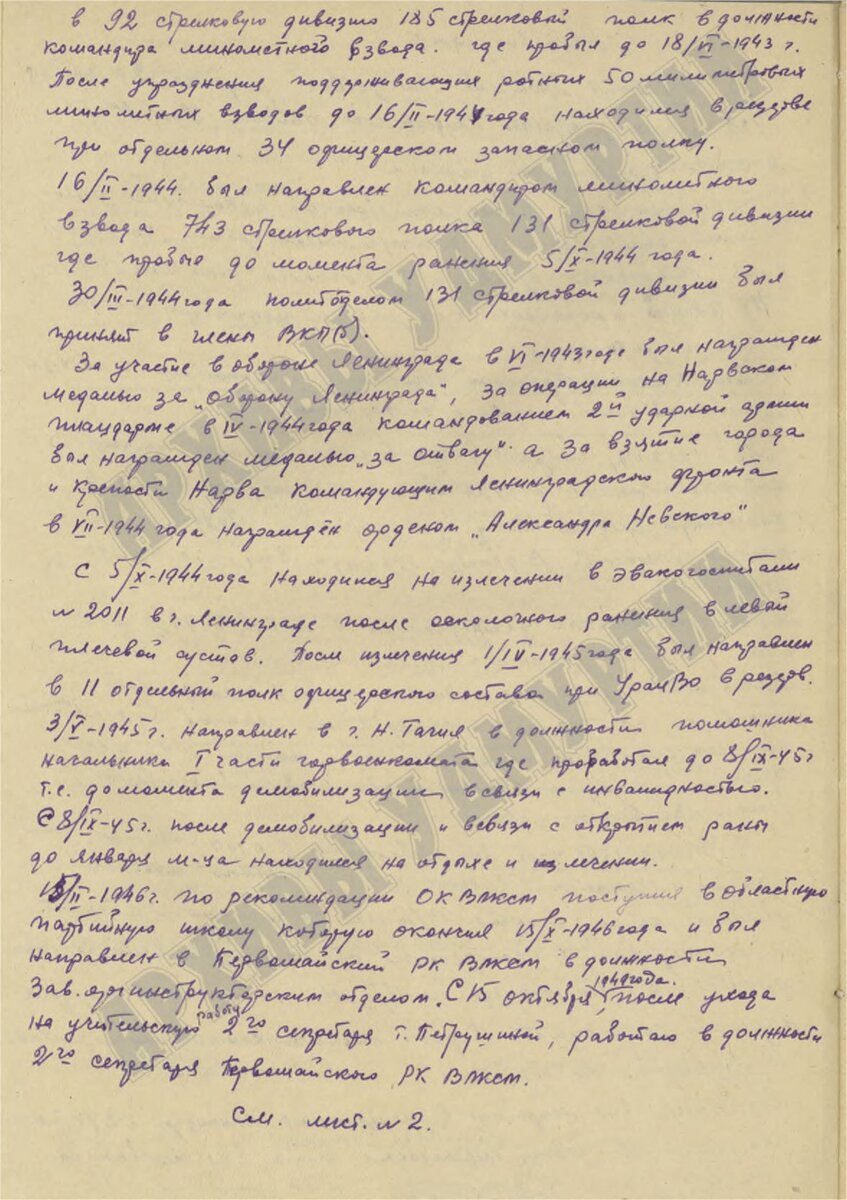 в 92 стрелковую дивизию 185 стрелковый полк в должности
командира минометного взвода. где пробыл до 18/VI-1943 г.
После упразднения поддерживающих ротных 50 милиметровых
минометных взводов до 16/II-1944 года находился в резерве
при отдельном 34 офицерском запасном полку.
16/II-1944. был направлен командиром минометного
взвода 743 стрелкового полка 131 стрелковой дивизии
где пробыл до момента ранения 5/X-1944 года.
30/III-1944 года политотделом 131 стрелковой дивизии был
принят в члены ВКП(б).
За участие в обороне Ленинграда в VI-1943 годе был награжден
медалью за „Оборону Ленинграда", за операции на Нарвском
плацдарме в IV-1944 года командованием 2й ударной армии
был награжден медалью „за отвагу" а за взятие города
и крепости Нарва командующим Ленинградского фронта
в VII-1944 года награждён орденом „Александра Невского"
С 5/X-1944 года находился на излечении в эвакогоспитали
№ 2011 в г. Ленинграде после осколочного ранения в левой
плечевой сустав. После излечения 1/IV-1945 года был направлен
в 11 отдельный полк офицерского состава при УралВО в резерв.
3/V-1945 г. направлен в г. Н. Тагил в должности помошника
начальника I части горвоенкомата где проработал до 8/IX-45 г
т.е. до момента демобилизации всвязи с инвалидностью.
С 8/IX-45 г. после демобилизации и всвязи с открытием раны
до января м-ца находился на отдыхе и излечении.
15/II-1946 г. по рекомендации ОК ВЛКСМ поступил в областную
партийную школу которую окончил 15/X-1946 года и был
направлен в Первомайский РК ВЛКСМ в должности
Зав. оргинструкторским отделом. С 15 октября 1949 года. после ухода
на учительскую работу 2го секретаря т. Петрушиной, работаю в должности
2го секретаря Первомайского РК ВЛКСМ.
См. лист. № 2.
АРХИВЫ УДМУРТИИ
АРХИВЫ УДМУРТИИ